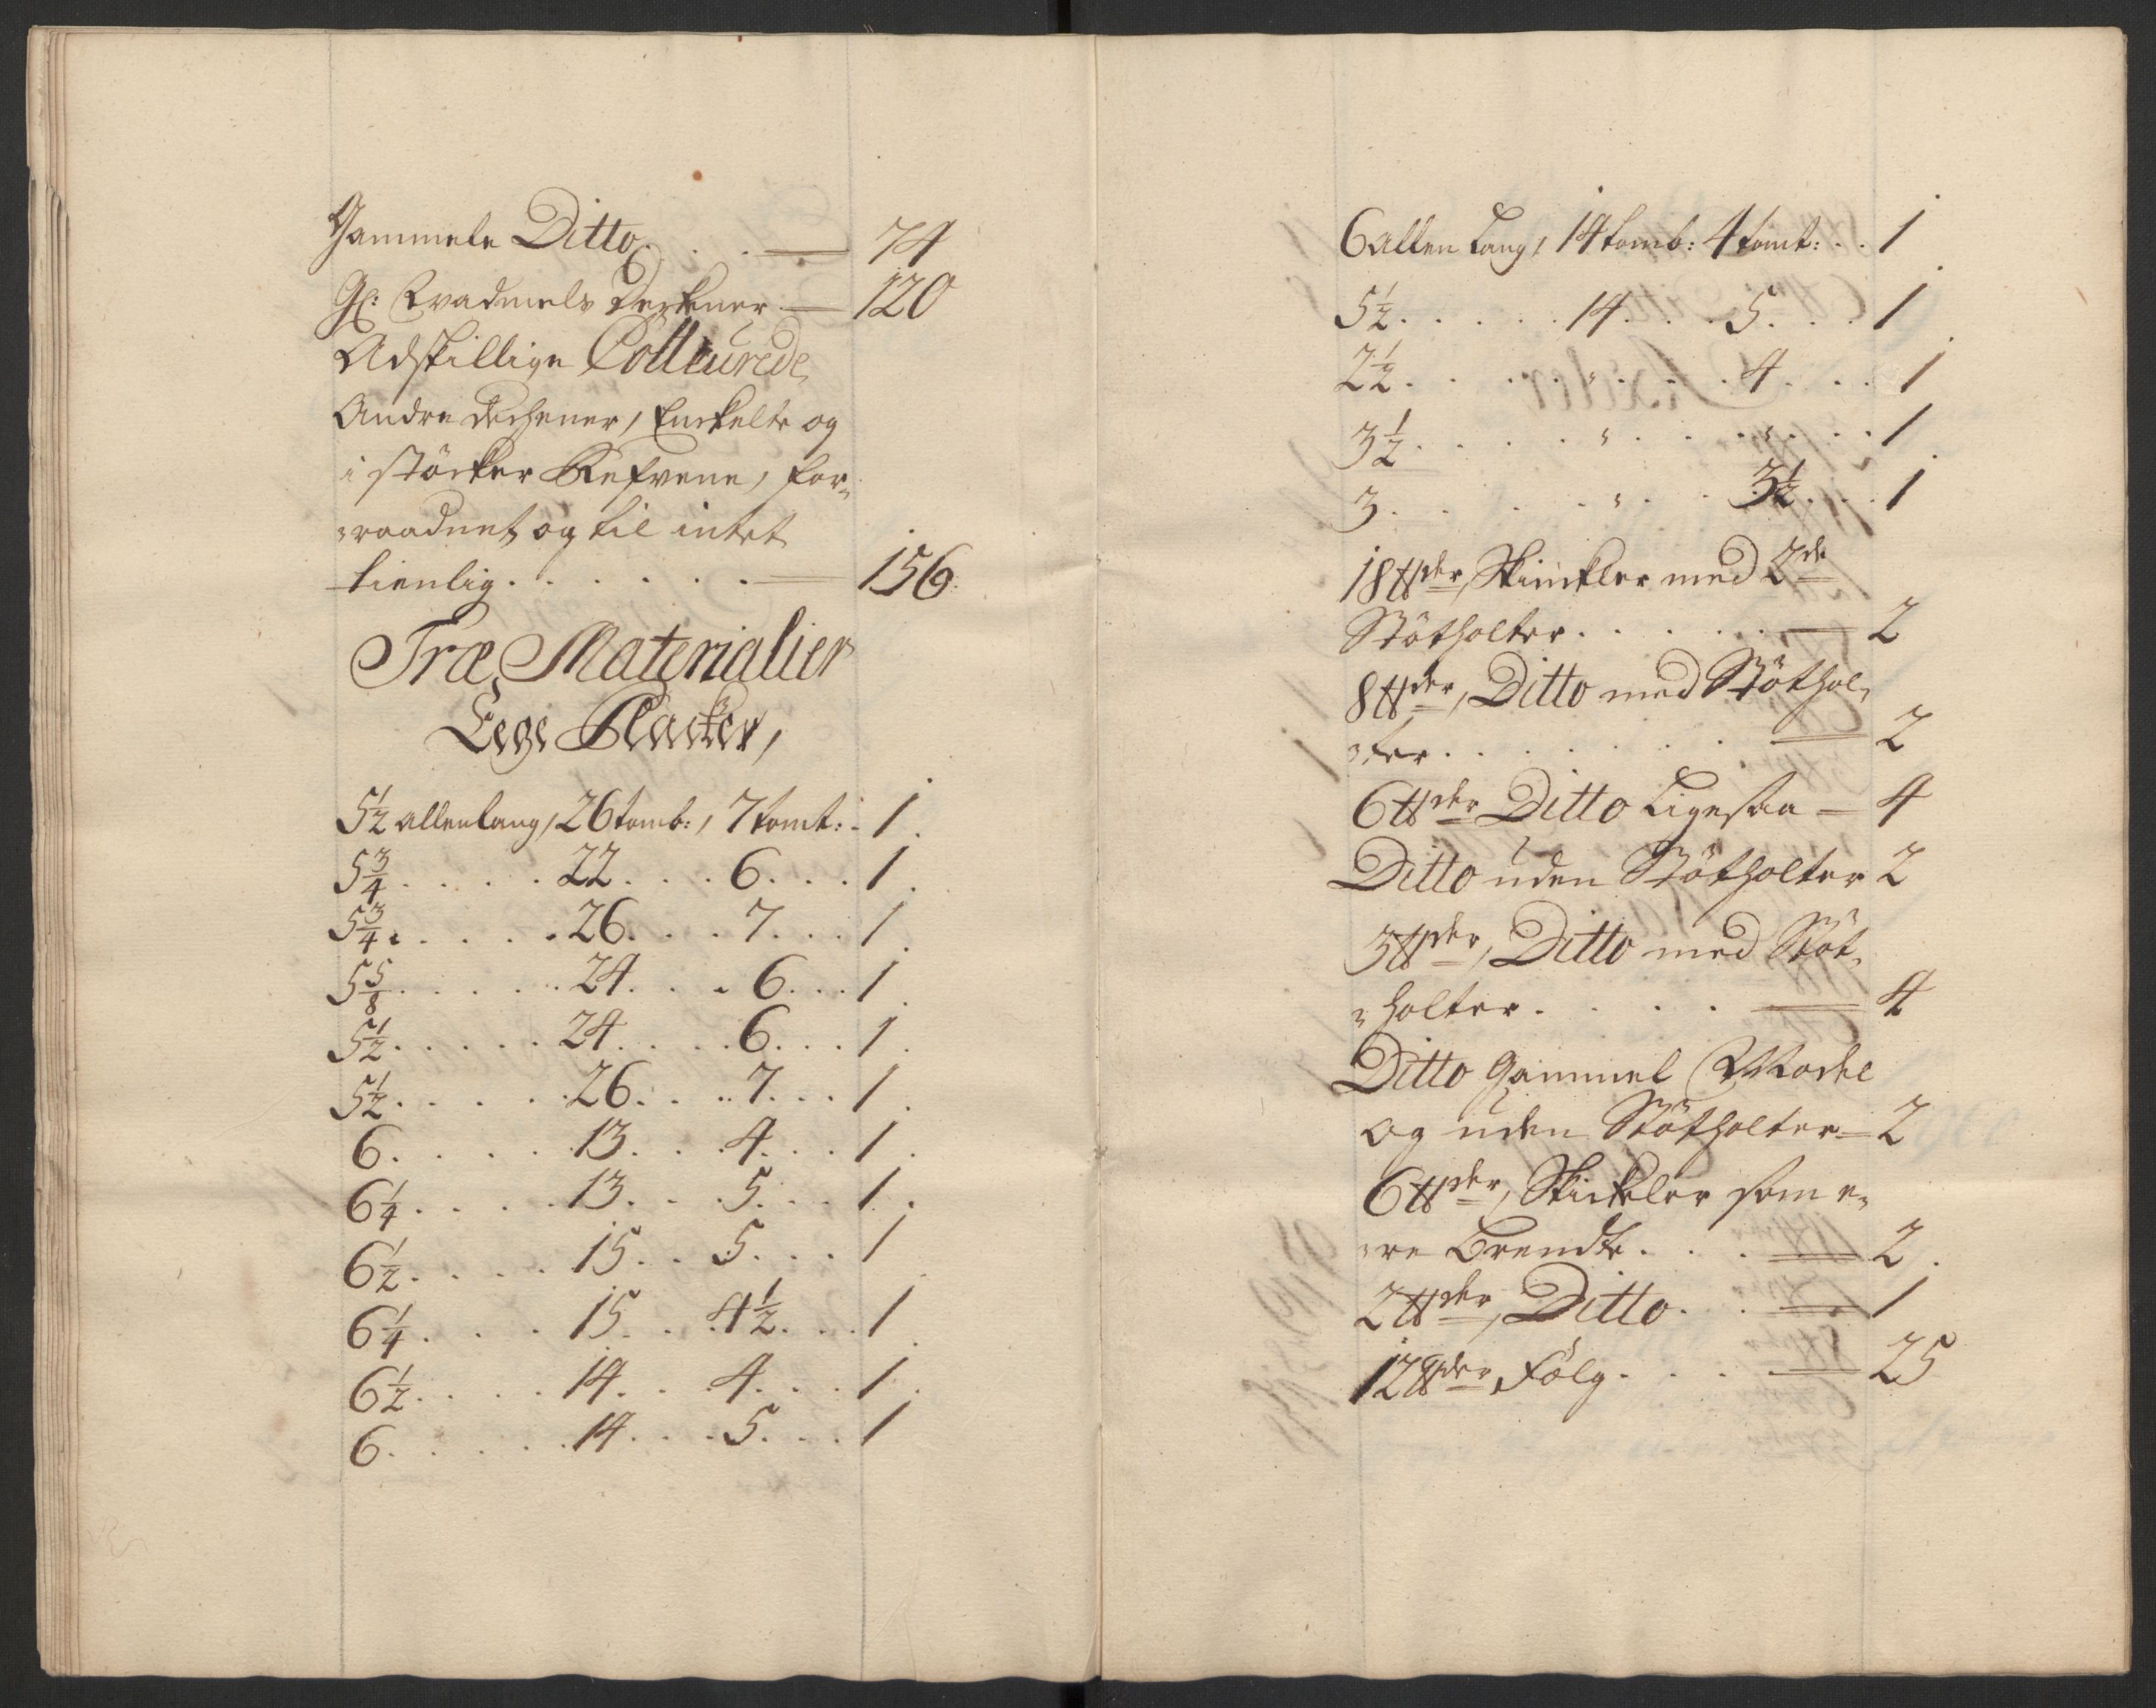 Gammele Ditto. . . — 74
Gl: Qvadmels Deckener — 120
Adskillige Colleurede
Andre dechener, Enckelte og
i støcker Refvene, for„
„raadnet og til intet
tienlig. . . . . . — 156.
Træ Materialier
Eege Placker,
5½ allen lang, 26 tomb:, 7 tomt: . 1.
5¾ . . . . . 22. . . . 6. . . . 1.
5¾ . . . . . 26. . . . 7. . . . 1.
5⅝ . . . . . 24. . . . 6. . . . 1.
5½ . . . . . 24. . . . 6. . . . 1.
5½ . . . . . 26. . . . 7. . . . 1.
6. . . . . 13. . . 4. . . . 1.
6¼ . . . . 13. . . . 5. . . . 1.
6½ . . . . 15. . . 5. . . . 1
6¼ . . . . 15. . . 4½. . . . 1.
6½ . . . . 14. . . . 4. . . . 1.
6. . . . . 14. . . . 5. . . . 1
6 allen lang, 14 tomb: 4 tomt: . . 1
5½ . . . . . 14. . . . 5. . . . 1
2½ . . . . . " . . . . 4. . . . 1
3½ . . . . . " . . . . " . . . . 1
3. . . . . " . . . 3½. . . . 1
18 ℔der, Skinckler med 2de
Støtholter. . . . . . — 2
8 ℔der, Ditto med Støthol„
„ter. . . . . . . — 2
6 ℔der Ditto Ligesaa — 4
Ditto uden Støtholter 2
3 ℔der, Ditto med Støt„
„holter. . . . . — 4
Ditto Gammel Model
og uden Støtholter — 2
6 ℔der, Skinckler som e„
„re Brendte. . . . — 2.
2 ℔der, Ditto. . . — 1
12 ℔der Følg. . . . — 25